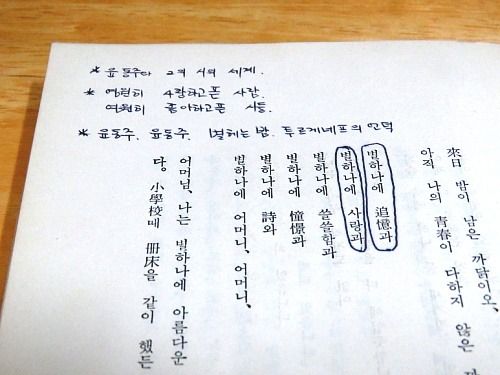 * 윤동주와 그의 시의 세계.
* 영원히 사랑하고픈 사람.
영원히 좋아하고픈 시들.
* 윤동주. 윤동주. 별헤는밤. 투르게네프의 언덕
來日 밤이 남은 까닭이오,
아직 나의 靑春이 다하지 않은
별하나에 追憶과
별하나에 사랑과
별하나에 쓸쓸함과
별하나에 憧憬과
별하나에 詩와
별하나에 어머니, 어머니,
어머님, 나는 별하나에 아름다운
다。小學校때 冊床을 같이 했든